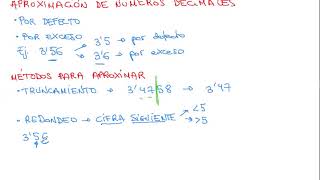 APROXIMACIÓN DE NÚMEROS DECIMALES
• POR DEFECTO
• POR EXCESO
Ej: 3'56 → 3'5 → por defecto
→ 3'6 → por exceso
MÉTODOS PARA APROXIMAR
• TRUNCAMIENTO → 3'4758 → 3'47
• REDONDEO → CIFRA SIGUIENTE → <5
→ >5
3'56